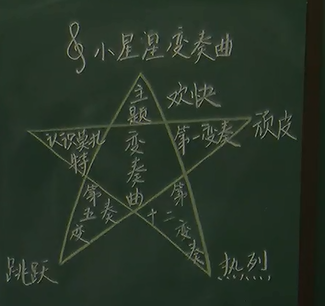 小星星变奏曲
欢快
主题变奏曲
认识莫扎特
第一变奏
顽皮
第五变奏
第十二变奏
跳跃
热烈